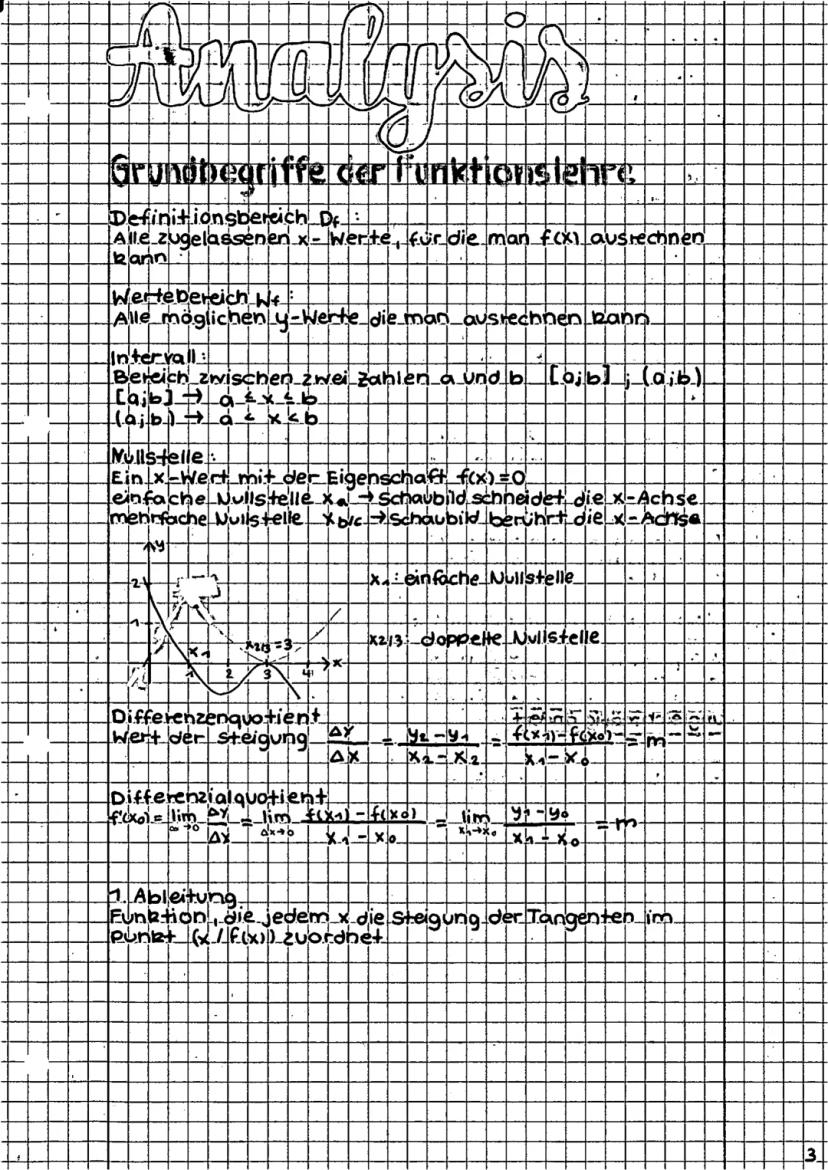 Analysis
Grundbegriffe der Funktionslehre
Definitionsbereich Df :
Alle zugelassenen x-Werte, für die man f(x) ausrechnen
kann
Wertebereich Wf :
Alle möglichen y-Werte die man ausrechnen kann
Intervall:
Bereich zwischen zwei Zahlen a und b [a;b] ; (a;b)
[a;b] → a ≤ x ≤ b
(a;b) → a < x < b
Nullstelle:
Ein x-Wert mit der Eigenschaft f(x)=0
einfache Nullstelle xa → Schaubild schneidet die x-Achse
mehrfache Nullstelle xb/c → Schaubild berührt die x-Achse
y
2
x1: einfache Nullstelle
1
x1 x2/3=3 x2/3: doppelte Nullstelle
1 2 3 4 x
Differenzenquotient
Wert der Steigung Δy/Δx = y2-y1/x2-x2 = f(x1)-f(x0)/x1-x0 = m
Differenzialquotient
f'(x0) = lim Δy/Δx = lim Δx→0 f(x1)-f(x0)/x1-x0 = lim x1→x0 y1-y0/x1-x0 = m
1. Ableitung
Funktion, die jedem x die Steigung der Tangenten im
Punkt (x/f(x)) zuordnet
3